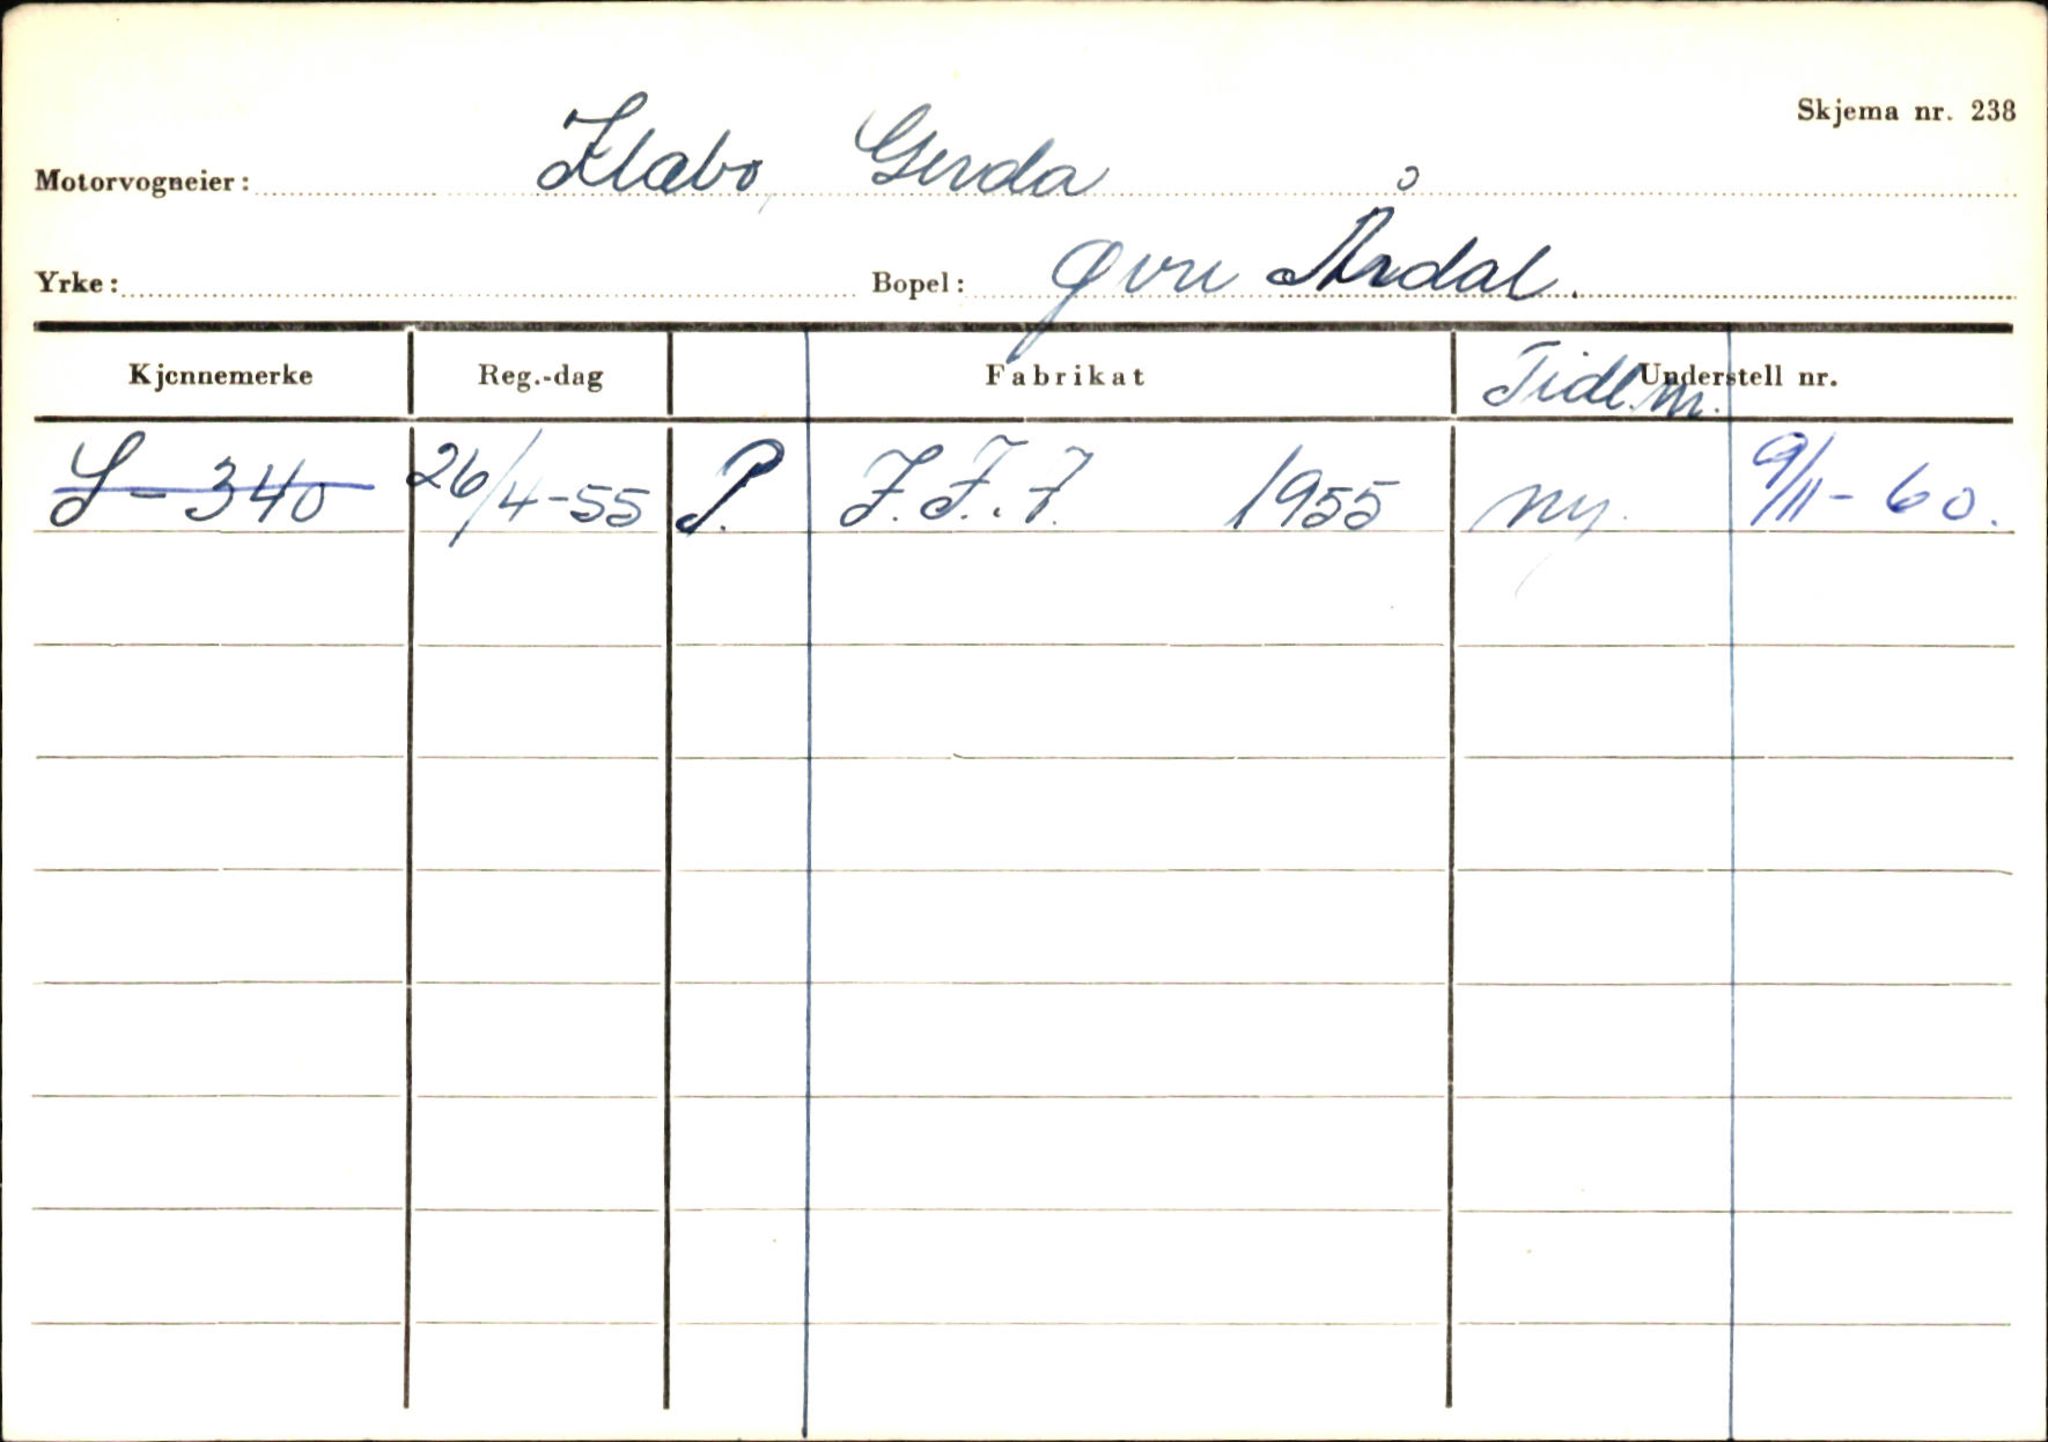 Skjema nr. 238
Motorvogneier: Flabo, Gerda
Yrke: Bopel: Øvre Årdal.
Kjennemerke Reg.-dag Fabrikat Tidl. nr. Understell nr.
S-340 26/4-55 P. I.F.A. F.7. 1955 ny. 9/11-60.